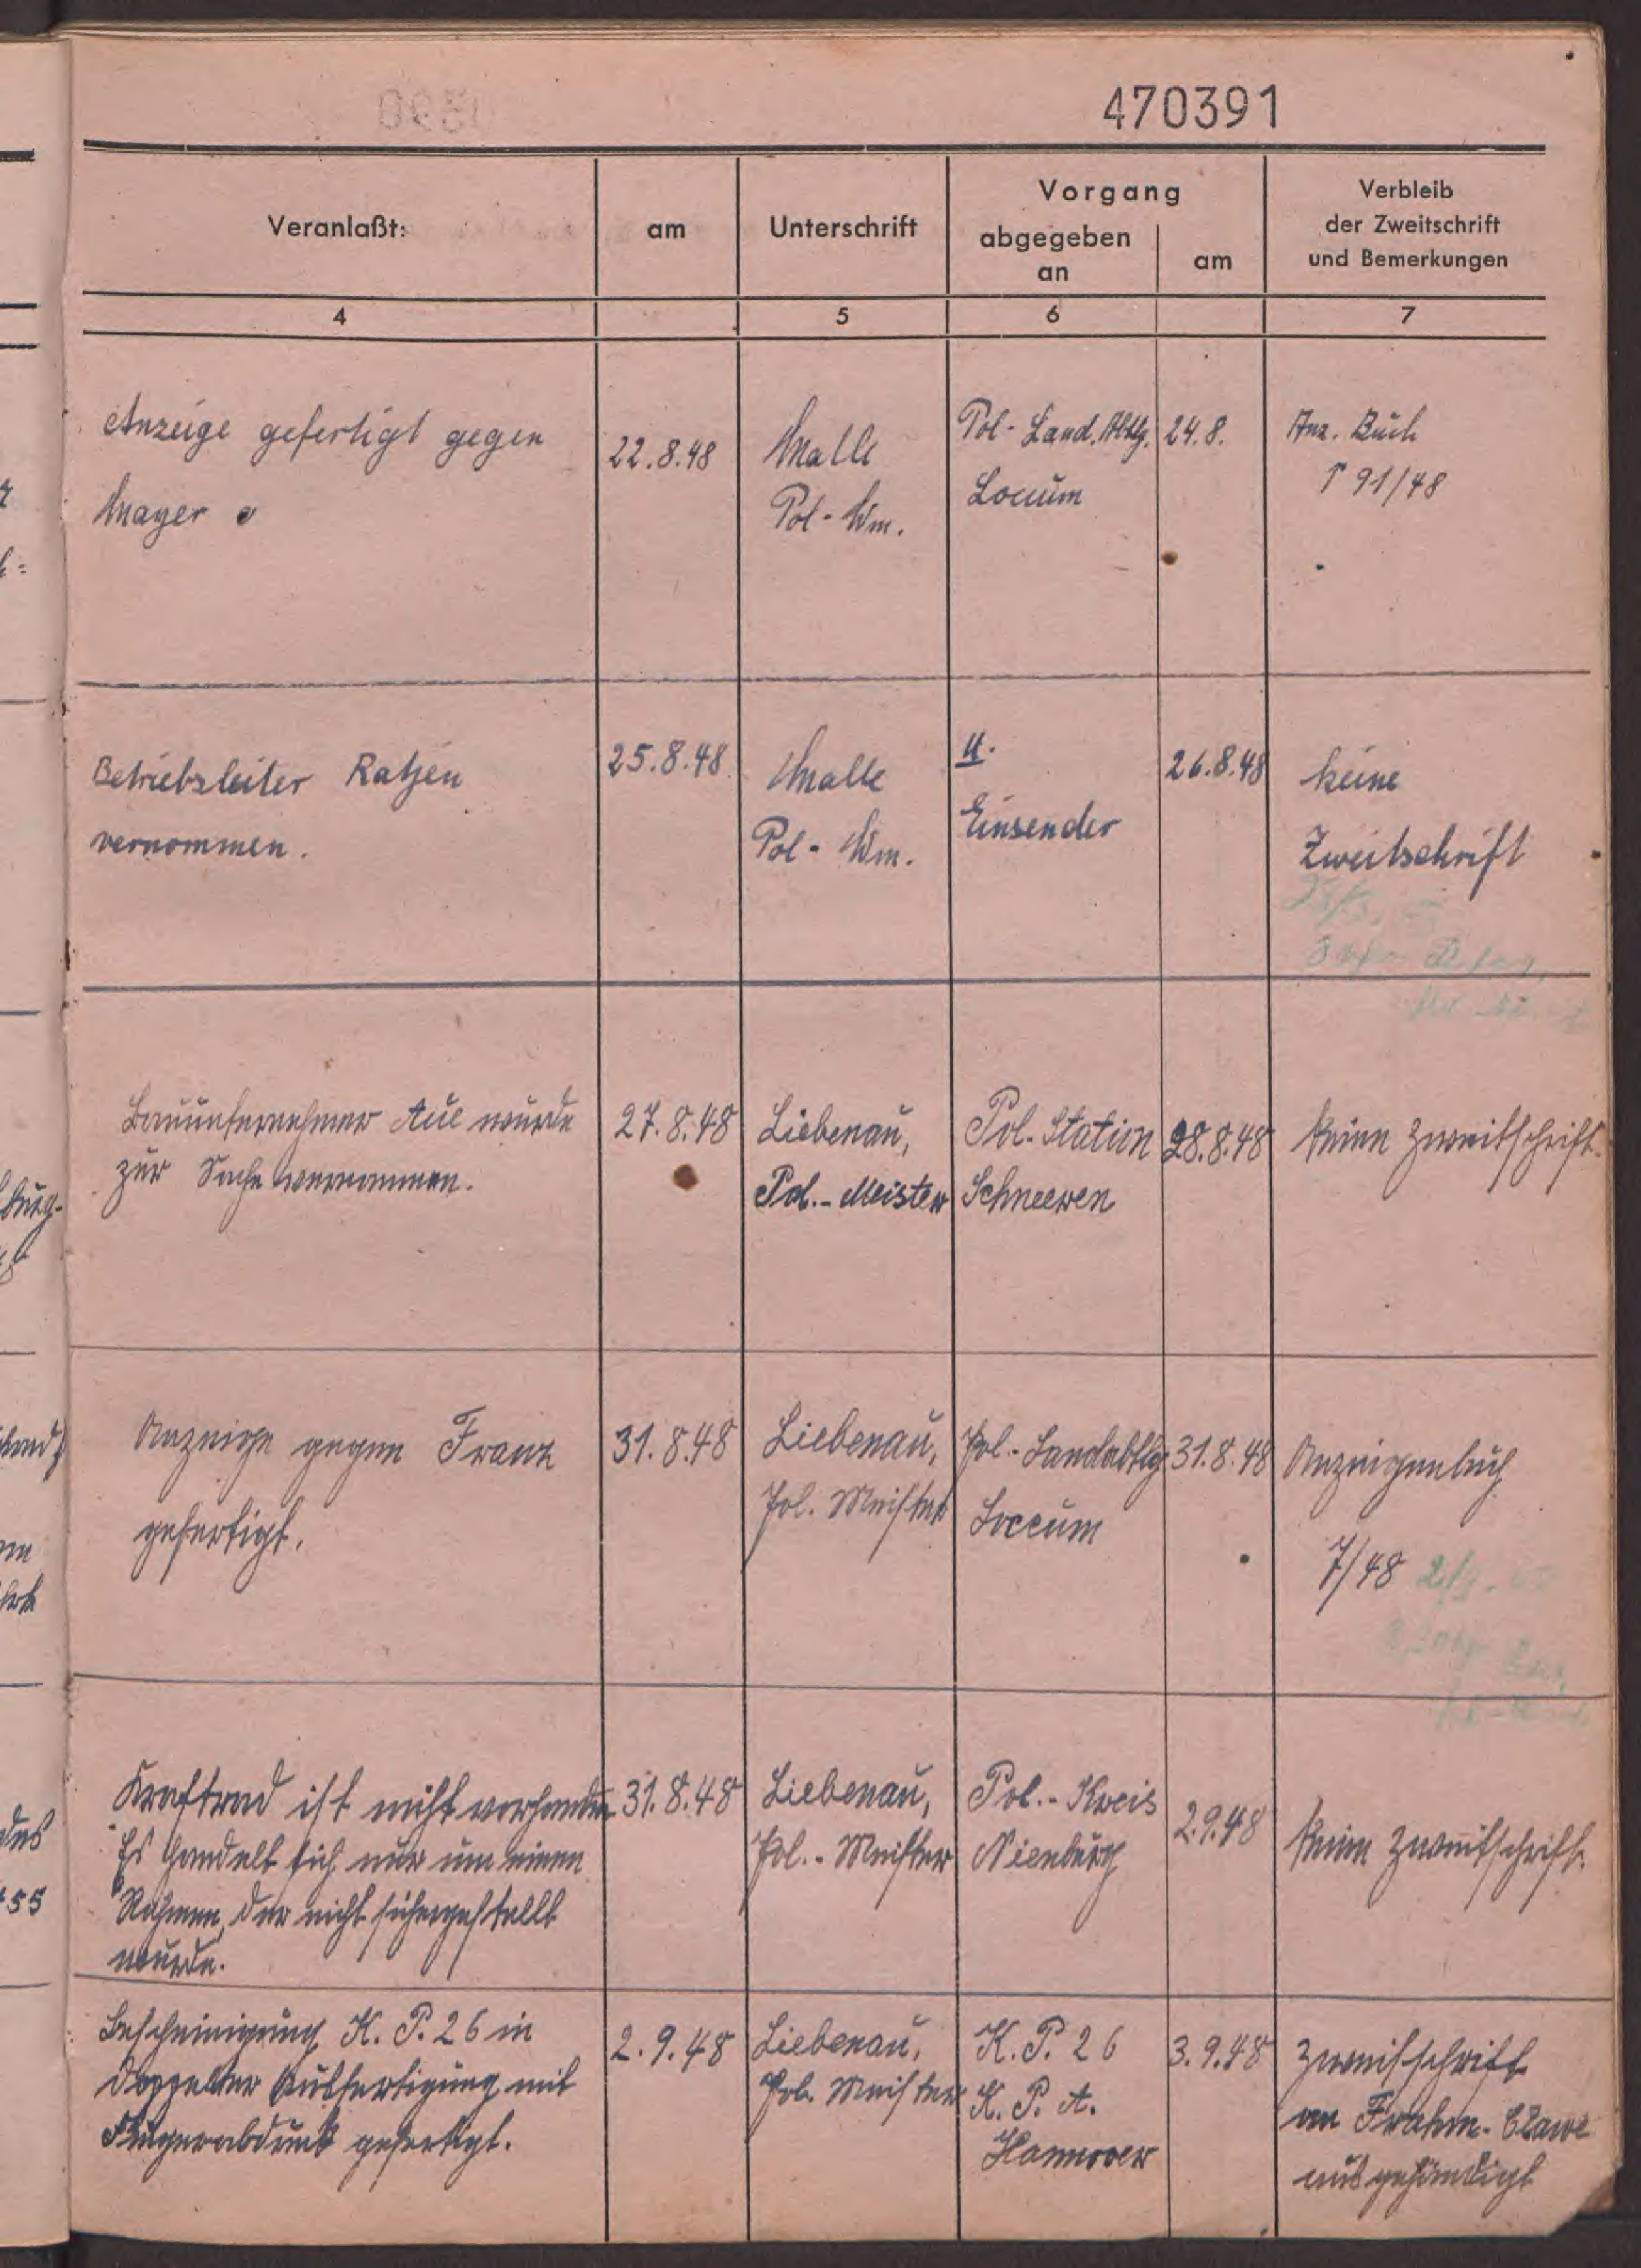 470391
Veranlaßt:
am
Unterschrift
Vorgang
abgegeben
an
am
Verbleib
der Zweitschrift
und Bemerkungen
4
5
6
7
Anzeige gefertigt gegen
Mayer
22.8.48
Malle
Pol-Wm.
Pol-Land. Abtlg.
Loccum
24.8.
Anz. Buch
91/48
Betriebsleiter Ratjen
vernommen.
25.8.48
Malle
Pol-Wm.
U.
Einsender
26.8.48
keine
Zweitschrift
Bauunternehmer Aue wurde
zur Sache vernommen.
27.8.48
Liebenau,
Pol.-Meister
Pol.-Station
Schneeren
28.8.48
keine Zweitschrift.
Anzeige gegen Franz
gefertigt.
31.8.48
Liebenau,
Pol. Meister
Pol.-Landabtlg
Loccum
31.8.48
Anzeigenbuch
7/48
Kraftrad ist nicht vorhanden
Es handelt sich nur um einen
Rahmen, der nicht sichergestellt
wurde.
31.8.48
Liebenau,
Pol.-Meister
Pol.-Kreis
Nienburg
2.9.48
keine Zweitschrift.
Bescheinigung K.P. 26 in
doppelter Ausfertigung mit
Fingerabdruck gefertigt.
2.9.48
Liebenau,
Pol. Meister
K.P. 26
K.P.A.
Hannover
3.9.48
Zweitschrift
an Frahm-
ausgehändigt
des
55